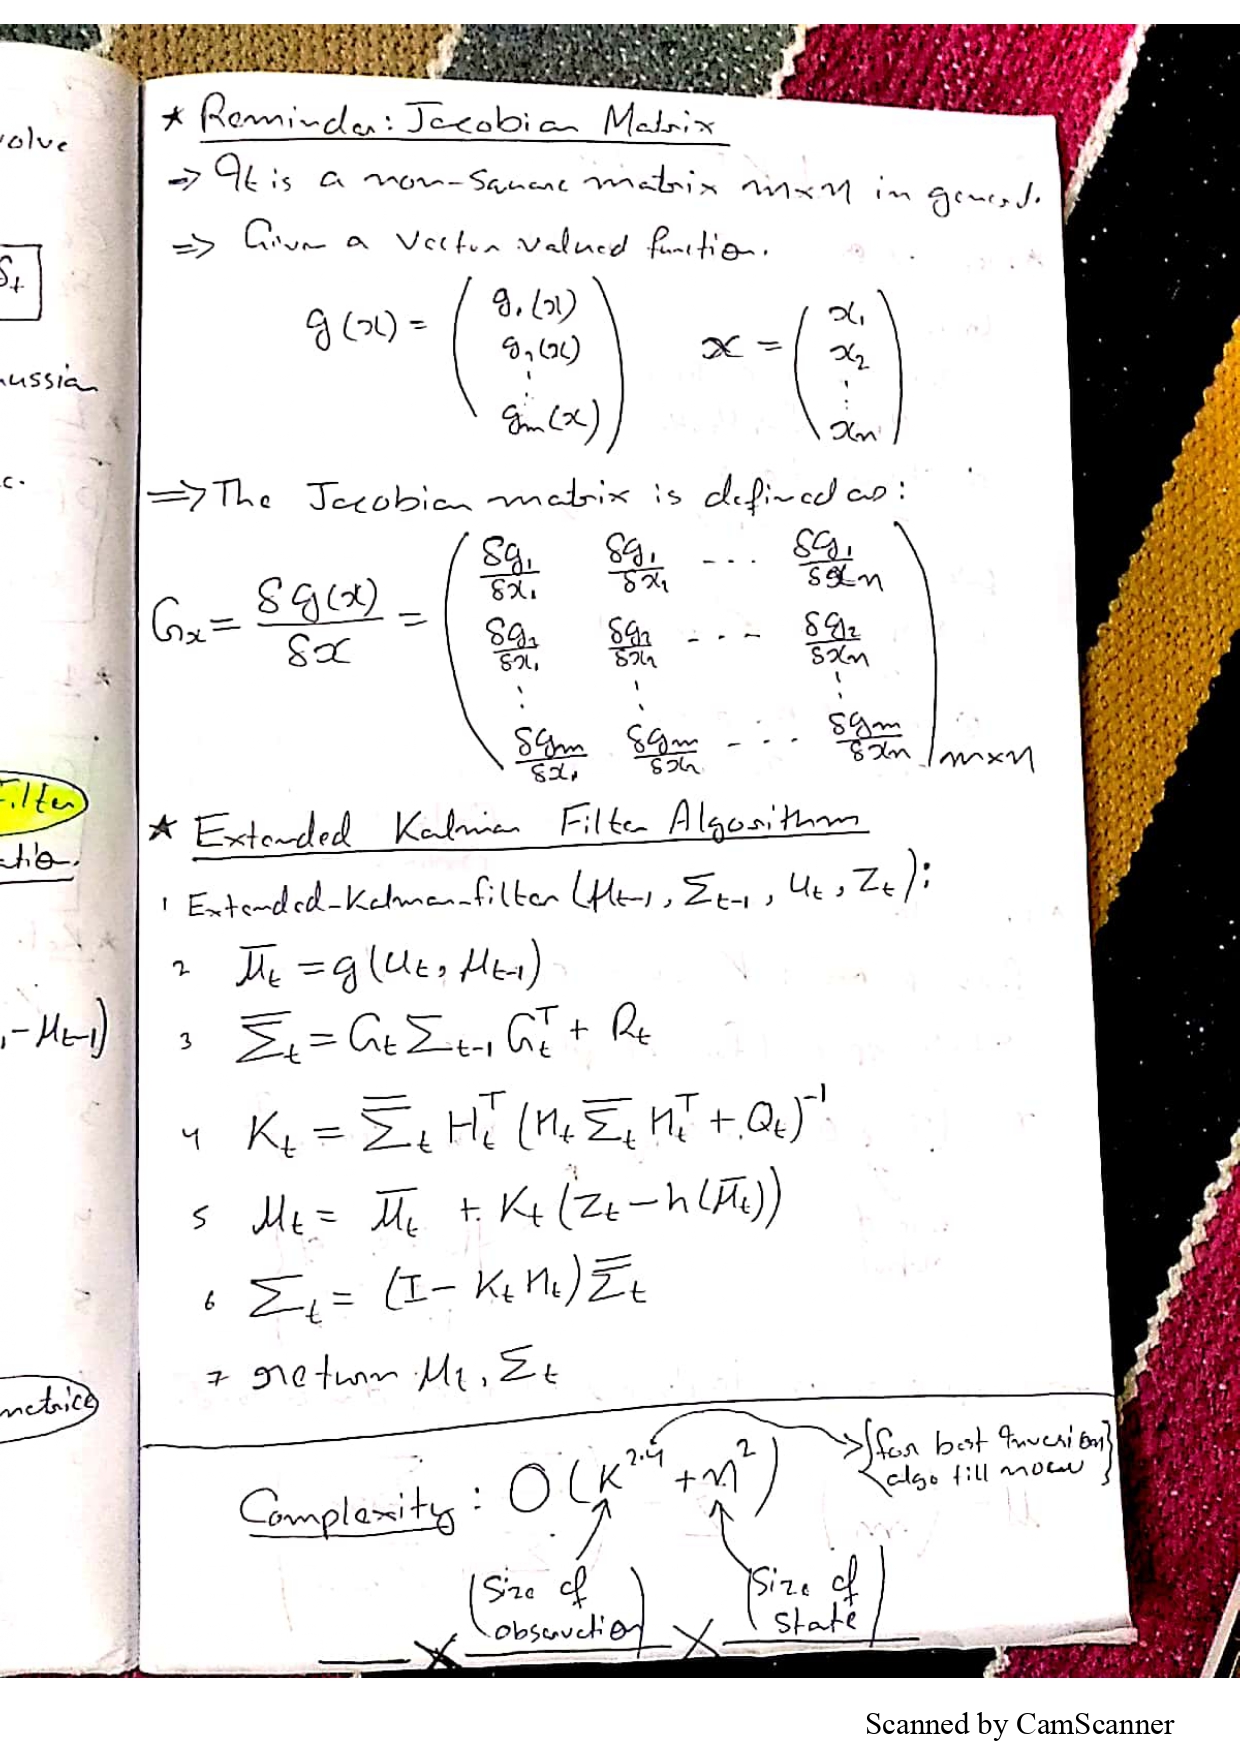 volve
St
aussian
c.
Filter
ation.
, - μt-1)
metrices
* Reminder: Jacobian Matrix
→ It is a non-square matrix m×n in general.
⇒ Given a vector valued function.
g(x) = ( g1(x) g2(x) ⋮ gm(x) ) x = ( x1 x2 ⋮ xn )
⇒ The Jacobian matrix is defined as:
Gx = δg(x)/δx = ( δg1/δx1 δg1/δx2 ... δg1/δxn
δg2/δx1 δg2/δx2 ... δg2/δxn
⋮ ⋮ ⋮
δgm/δx1 δgm/δx2 ... δgm/δxn ) m×n
* Extended Kalman Filter Algorithm
1 Extended-Kalman-filter (μt-1, Σt-1, ut, zt):
2 μ̄t = g(ut, μt-1)
3 Σ̄t = Gt Σt-1 Gt^T + Rt
4 Kt = Σ̄t Ht^T (Ht Σ̄t Ht^T + Qt)^-1
5 μt = μ̄t + Kt (zt - h(μ̄t))
6 Σt = (I - Kt Ht) Σ̄t
7 return μt, Σt
Complexity: O(K^2.4 + n^2) → {for best Inversion
algo till now}
(Size of (Size of
observation) state)
Scanned by CamScanner